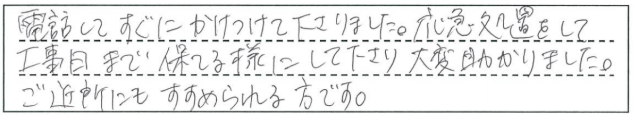 電話してすぐにかけつけて下さりました。応急処置をして
工事日まで保てる様にして下さり大変助かりました。
ご近所にもすすめられる方です。